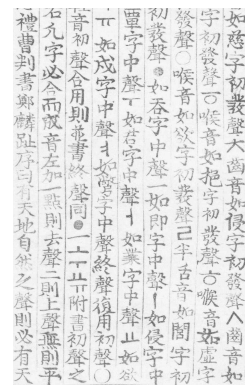 如慈字初發聲ㅊ齒音如侵字初發聲ㅅ
字初發聲ㆆ喉音如挹字初發聲ㅎ喉音如虛字
發聲ㅇ喉音如欲字初發聲ㄹ半舌音如閭字初
初發聲ㆍ如呑字中聲ㅡ如即字中聲ㅣ如侵字中
覃字中聲ㅜ如君字中聲ㅓ如業字中聲ㅛ如欲
ㅠ如戌字中聲ㅕ如彆字中聲終聲復用初聲ㅇ
音初聲合用則並書終聲同ㆍㅡㅗㅜㅛㅠ附書初聲之
右凡字必合而成音左加一點則去聲二則上聲無則平
禮曹判書鄭麟趾序曰有天地自然之聲則必有天